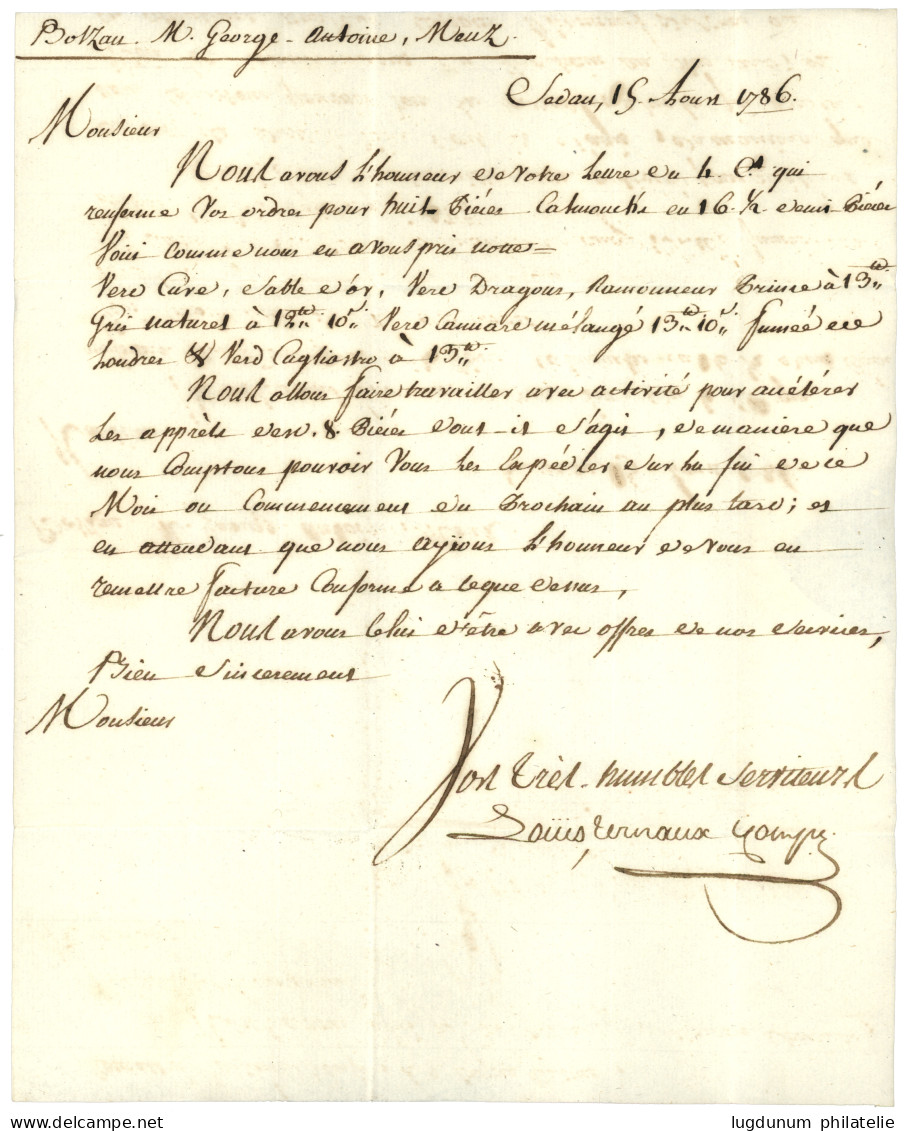 Botzau. M. George-Antoine, Menz.
Sedan, 15. Aoust 1786.
Monsieur
Nous avons L'honneur de Votre Lettre du 4. Ct qui
renferme Vos ordres pour huit Piéces Calmoucks en 16. 1/2 demi Piéces
Voici comme nous en avons pris notte
Verd Cuve, Sable d'or, Verd Dragons, Ramonneur Prince à 13tt
Gris naturel à 12tt 10s Verd Canuare mélangé 13tt 10s fumée de
Londres & Verd Cagliostro à 13tt.
Nous allons faire travailler avec activité pour accélérer
Les apprèts des 8. Piéces dont-il s'agit, de maniére que
nous Comptons pouvoir Vous Les Expédier sur La fin de ce
Mois ou Commencement du Prochain au plus tard; et
en attendant que nous ayions L'honneur de Vous en
remettre facture Conforme a ceque dessus,
Nous avons Celui d'être avec offres de nos services,
Bien sincerement
Monsieur
Vos très-humbles serviteurs
Loüis Ternaux Compe
lugdunum philatelie